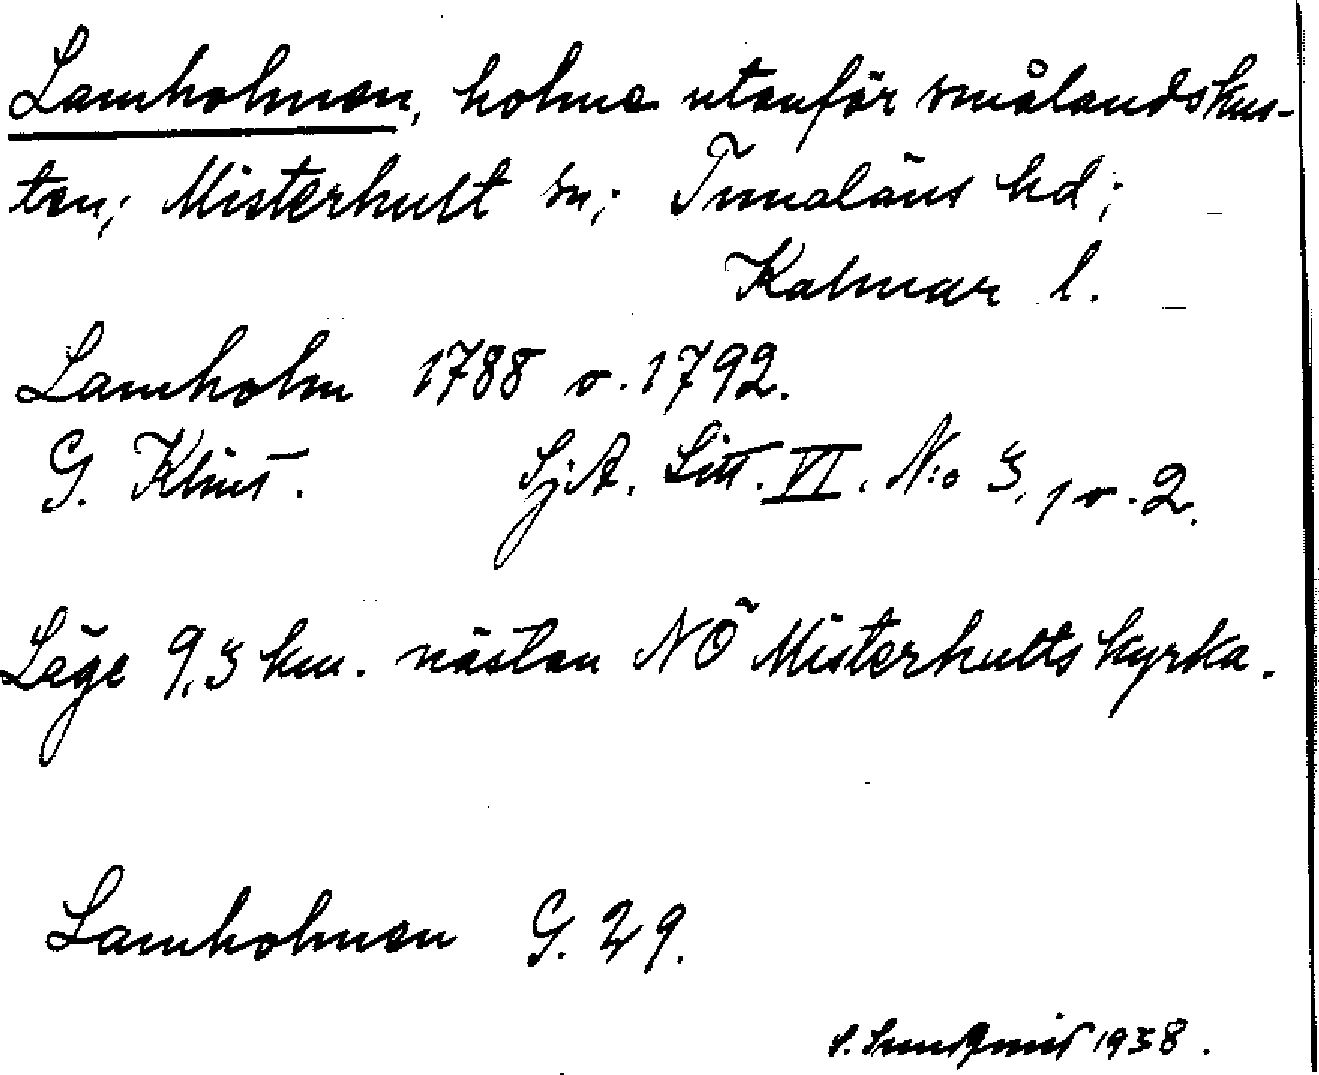 Lamholmen, holme utanför smålandskus-
ten; Misterhult sn; Tunaläns hd;
Kalmar l.
Lamholm 1788 o. 1792.
G. Klint. SjA. Litt. VI. N:o 3, 1 o. 2.
Läge 9,3 km. nästan NÖ Misterhults kyrka.
Lamholmen G. 29.
Sundqvist 1938.